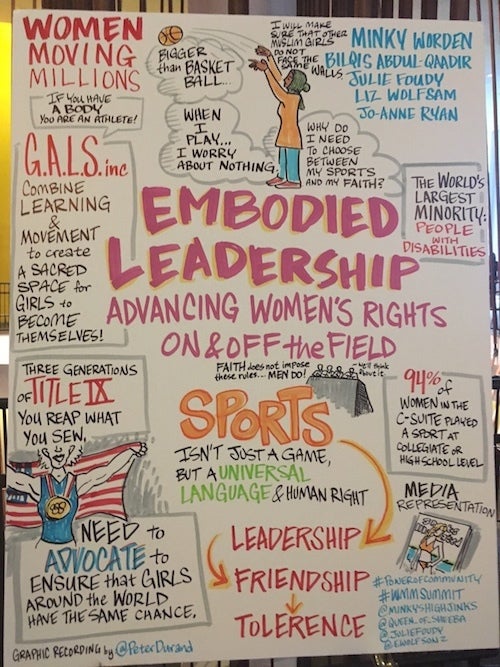 WOMEN
MOVING
MILLIONS
IF YOU HAVE
A BODY
YOU ARE AN ATHLETE!
BIGGER
than BASKET
BALL...
WHEN
I
PLAY...
I WORRY
ABOUT NOTHING
I WILL MAKE
SURE THAT OTHER
MUSLIM GIRLS
DO NOT
FACE THE
SAME WALLS
WHY DO
I NEED
TO CHOOSE
BETWEEN
MY SPORTS
AND MY FAITH?
MINKY WORDEN
BILQIS ABDUL-QAADIR
JULIE FOUDY
LIZ WOLFSAM
JO-ANNE RYAN
G.A.L.S. inc
COMBINE
LEARNING
&
MOVEMENT
to create
A SACRED
SPACE for
GIRLS to
BECOME
THEMSELVES!
EMBODIED
LEADERSHIP
ADVANCING WOMEN'S RIGHTS
ON & OFF the FIELD
THE WORLD'S
LARGEST
MINORITY:
PEOPLE
WITH
DISABILITIES
FAITH does not impose
these rules... MEN DO!
we'll think
about it
THREE GENERATIONS
OF TITLE IX
YOU REAP WHAT
YOU SEW.
SPORTS
ISN'T JUST A GAME,
BUT A UNIVERSAL
LANGUAGE & HUMAN RIGHT
94% of
WOMEN IN THE
C-SUITE PLAYED
A SPORT AT
COLLEGIATE OR
HIGH SCHOOL LEVEL
MEDIA
REPRESENTATION
NEED to
ADVOCATE to
ENSURE that GIRLS
AROUND the WORLD
HAVE THE SAME CHANCE.
LEADERSHIP
FRIENDSHIP
TOLERENCE
#POWEROFCOMMUNITY
#WMMSUMMIT
@MINKYSHIGHJINKS
@QUEEN_OF_SHEEBA
@JULIEFOUDY
@EWOLFSON2
GRAPHIC RECORDING by @PeterDurand